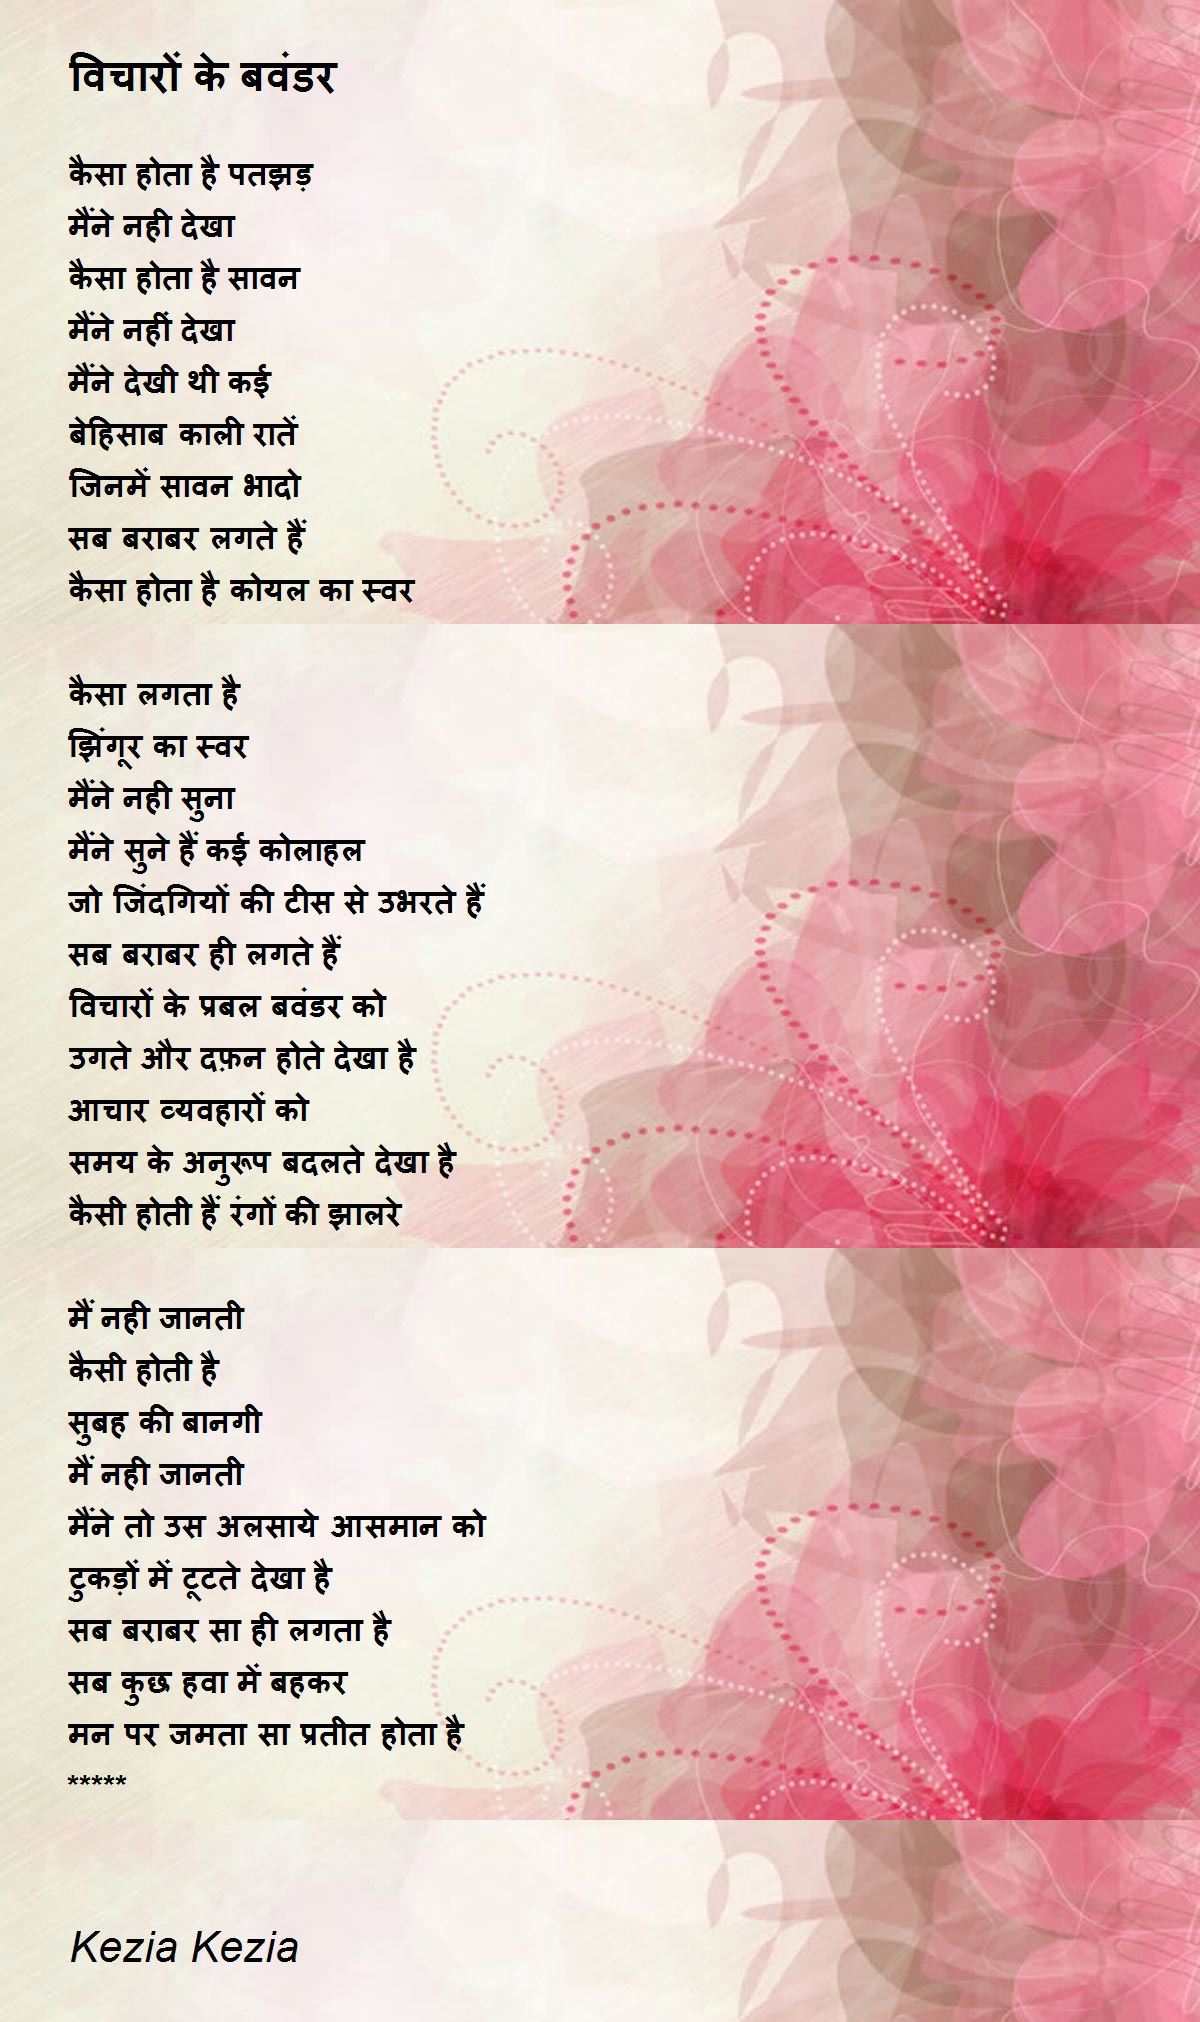 विचारों के बवंडर
कैसा होता है पतझड़
मैंने नही देखा
कैसा होता है सावन
मैंने नहीं देखा
मैंने देखी थी कई
बेहिसाब काली रातें
जिनमें सावन भादो
सब बराबर लगते हैं
कैसा होता है कोयल का स्वर
कैसा लगता है
झिंगूर का स्वर
मैंने नही सुना
मैंने सुने हैं कई कोलाहल
जो जिंदगियों की टीस से उभरते हैं
सब बराबर ही लगते हैं
विचारों के प्रबल बवंडर को
उगते और दफ़न होते देखा है
आचार व्यवहारों को
समय के अनुरूप बदलते देखा है
कैसी होती हैं रंगों की झालरे
मैं नही जानती
कैसी होती है
सुबह की बानगी
मैं नही जानती
मैंने तो उस अलसाये आसमान को
टुकड़ों में टूटते देखा है
सब बराबर सा ही लगता है
सब कुछ हवा में बहकर
मन पर जमता सा प्रतीत होता है
*****
Kezia Kezia